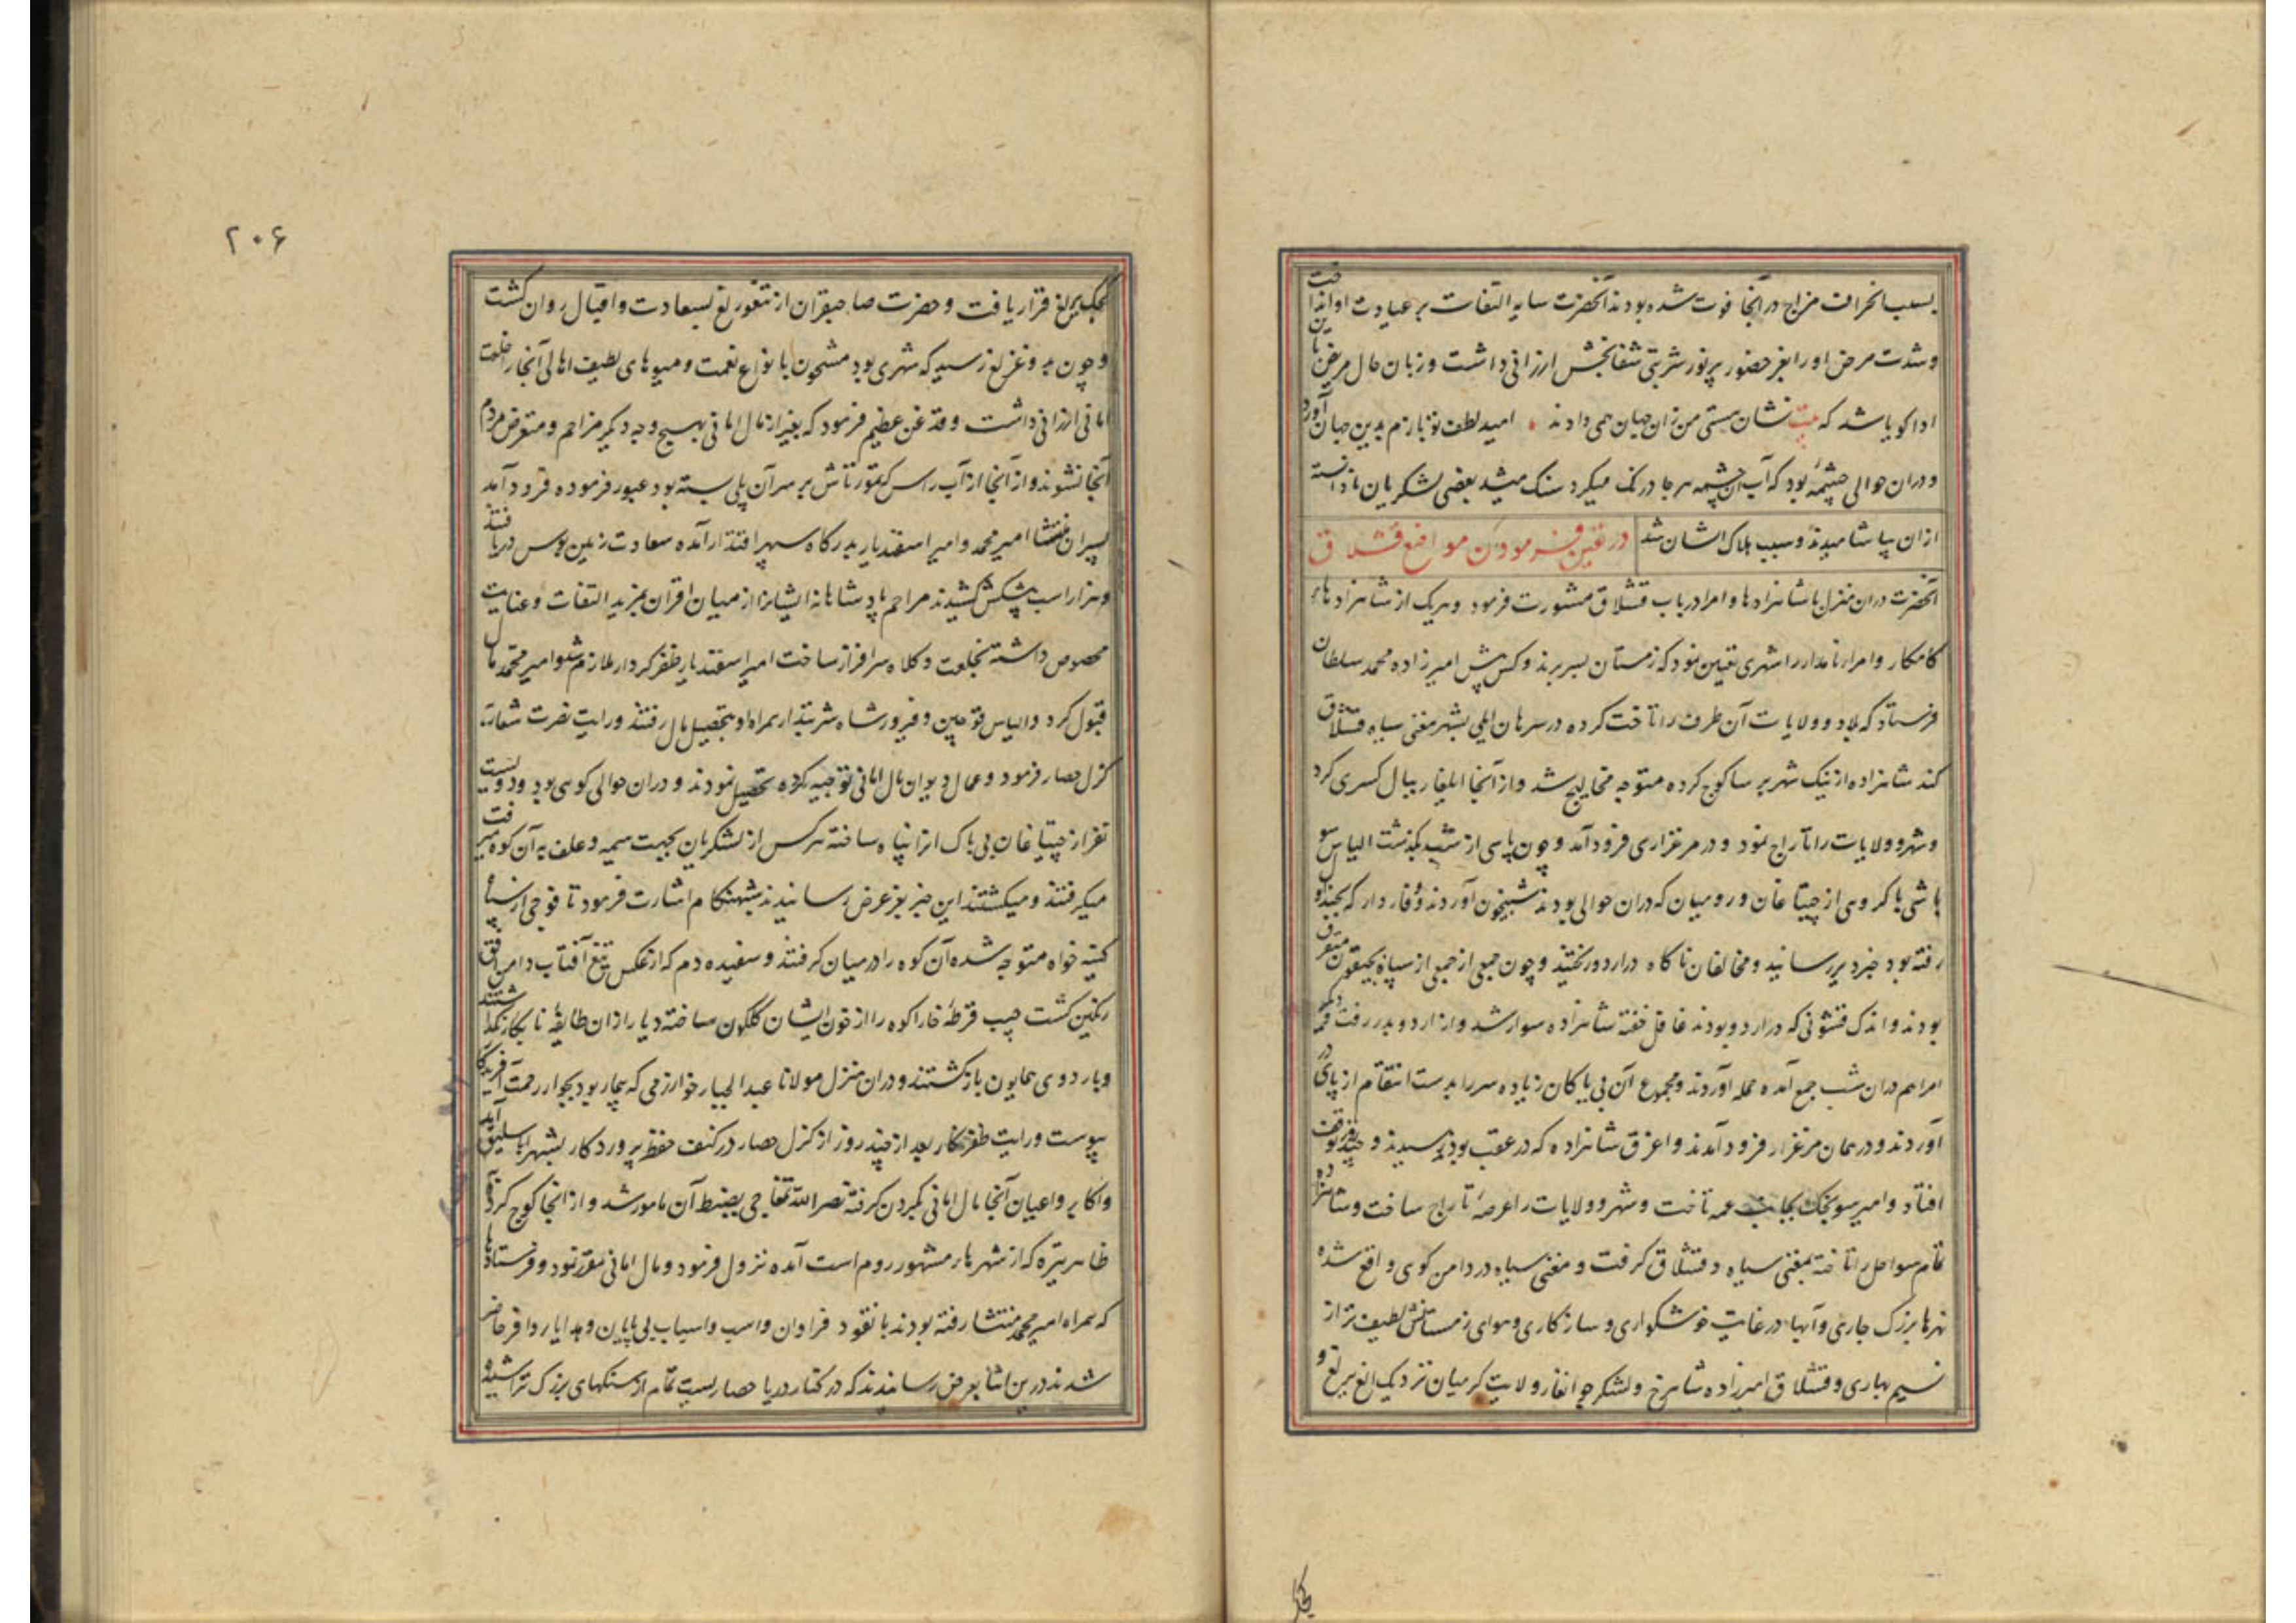 بسبب انحراف مزاج در آنجا فوت شده بودند آنحضرت سایه التفات بر عیادت او انداخت
وشدت مرض او را بفر حضور پرنور شربتی شفابخش ارزانی داشت و زبان حال مریض باین
ادا کویا شد که بیت نشان هستی من زان جهان همی دادند امید لطف تو بازم بدین جهان آورد
و دران حوالی چشمهٔ بود که آب آن چشمه هر جا درنک میکرد سنک میشد بعضی لشکریان نادانسته
ازان بیاشامیدند و سبب هلاک ایشان شد
در تعیین فرمودن مواضع قشلاق
آنحضرت دران منزل با شاهزادها و امرا در باب قشلاق مشورت فرمود و هریک از شاهزادهاء
کامکار و امراء نامدار را شهری تعیین نمود که زمستان بسر برند و کس پیش امیرزاده محمد سلطان
فرستاد که بلاد و ولایات آن طرف را تاخت کرده در سرهان ایلی بشهر مغنی سیاه قشلاق
کند شاهزاده از نیک شهر برسا کوچ کرده متوجه مخالیج شد و از آنجا ایلغار ببال کسری کرد
و شهر و ولایات را تاراج نمود و در مرغزاری فرود آمد و چون پاسی از شب بگذشت الیاس سو
باشی با کروهی از چپتاغان و رومیان که دران حوالی بودند شبیخون آوردند وفادار که بجیدو
رفته بود خبر دیر رسانید و مخالفان ناکاه در اردو ریختند و چون جمعی از جمعی از سپاه بجیقون متفرق
بودند و اندک قشونی که در اردو بودند غافل خفته شاهزاده سوار شد و از اردو بدر رفت
امرا هم دران شب جمع آمده حمله آوردند و مجموع آن بی باکان زیاده سر را بدست انتقام از پای در
آوردند و در همان مرغزار فرود آمدند و اغرق شاهزاده که در عقب بود برسیدند و چند توقف
افتاد و امیر سونجک بجانب عمه تاخت و شهر و ولایات را عرصهٔ تاراج ساخت و شاهزاده
تمام سواحل را تاخته بمغنی سیاه و قشلاق کرفت و مغنی سیاه در دامن کوهی واقع شده
نهرها بزرک جاری و آبها در غایت خوشکواری و سازکاری و هوای زمستانش لطیف تر از
نسیم بهاری و قشلاق امیرزاده شاهرخ و لشکر جوانغار ولایت کرمیان نزدیک الغ برلغ و
کجک برلغ قرار یافت و حضرت صاحبقران از تنغورلغ بسعادت و اقبال روان کشت
و چون به وغزلغ رسید که شهری بود مشحون بانواع نعمت و میوهای لطیف اهالی آنجا را خلعت
امانی ارزانی داشت و قدغن عظیم فرمود که بغیر از مال امانی بهیچ وجه دیکر مزاحم و متعرض مردم
آنجا نشوند و از آنجا از آب راس که تمورتاش بر سر آن پلی بسته بود عبور فرموده فرود آمد
پسران منتشا امیر محمد و امیر اسفندیار بدرکاه سپهر اقتدار آمده سعادت زمین بوس دریافتند
و هزار اسب پیشکش کشیدند مراحم پادشاهانه ایشانرا از میان اقران بمزید التفات و عنایت
مخصوص داشته بخلعت و کلاه سرافراز ساخت امیر اسفندیار ظفر کردار ملازم شد و امیر محمد مال
قبول کرد و الیاس قوجین و فیروز شاه شربتدار همراه او بتحصیل مال رفتند و رایت نصرت شعار
کزل حصار فرمود و عمال دیوان مال امانی توجیه کرده تحصیل نمودند و دران حوالی کوهی بود و دویست
نفر از چپتاغان بی باک انرا پناه ساخته هر کس از لشکریان بجهت هیمه و علف به آن کوه میرفت
میکرفتند و میکشتند این خبر بعز عرض رسانیدند شبهنکام اشارت فرمود تا فوجی از سپاه
کینه خواه متوجه شده آن کوه را در میان کرفتند و سفیده دم که از عکس تیغ آفتاب دامن افق
رنکین کشت جیب قرطهٔ خارا کوه را از خون ایشان کلکون ساخته دیار ازان طایفهٔ نابکار نکذاشتند
و بار دوی همایون باز کشتند و دران منزل مولانا عبد الجبار خوارزمی که بیمار بود بجوار رحمت آفریدکار
پیوست و رایت ظفرنکار بعد از چند روز از کزل حصار در کنف حفظ پروردکار بشهر ایاسلیق آمد
و اکابر و اعیان آنجا مال امانی بکردن کرفته نصر الله تمغاجی بضبط آن مامور شد و از انجا کوچ کرده
ظاهر تیره که از شهرهاء مشهور روم است آمده نزول فرمود و مال امانی مقرر نمود و فرستادها
که همراه امیر محمد منتشا رفته بودند با نقود فراوان و اسب و اسباب بی پایان و هدایا روا فر حاضر
شدند درین اثنا بعرض رسانیدند که در کنار دریا حصاریست تمام از سنکهای بزرک تراشیده
۲۰۶